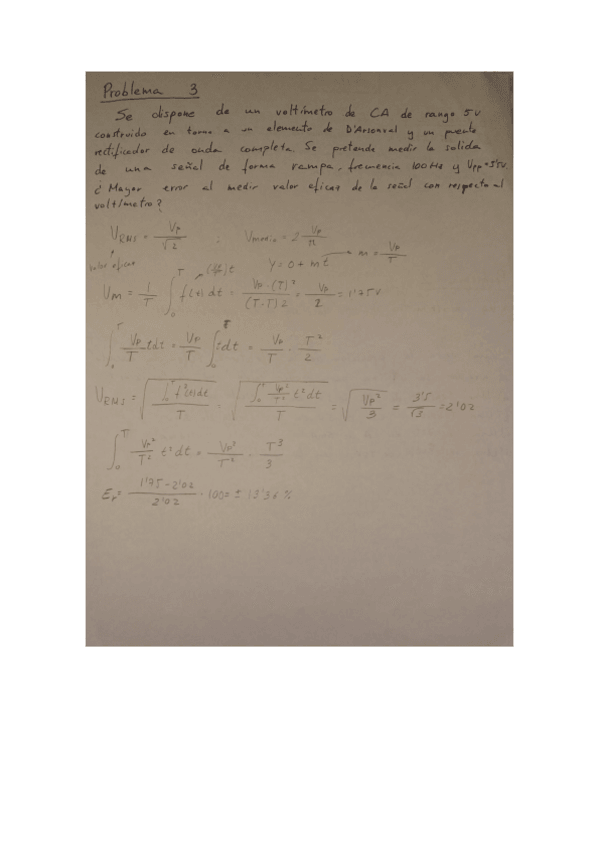 Problema 3
Se dispone de un voltímetro de CA de rango 5V
construido en torno a un elemento de D'Arsonval y un puente
rectificador de onda completa. Se pretende medir la salida
de una señal de forma rampa, frecuencia 100Hz y Vpp=3'5V.
¿Mayor error al medir valor eficaz de la señal con respecto al
voltímetro?
VRMS = Vp/√2 ; Vmedio = 2 Vp/π
valor eficaz
y = 0 + mt → m = Vp/T
Vm = 1/T ∫₀ᵀ f(x) dt = Vp·(T)²/(T·T)2 = Vp/2 = 1'75V
∫₀ᵀ Vp/T t dt = Vp/T ∫₀ᵀ t dt = Vp/T · T²/2
VRMS = √(∫₀ᵀ f²(x) dt / T) = √(∫₀ᵀ Vp²/T² t² dt / T) = √(Vp²/3) = 3'5/√3 = 2'02
∫₀ᵀ Vp²/T² t² dt = Vp²/T² · T³/3
Er = (1'75-2'02)/2'02 · 100 = ± 13'36 %